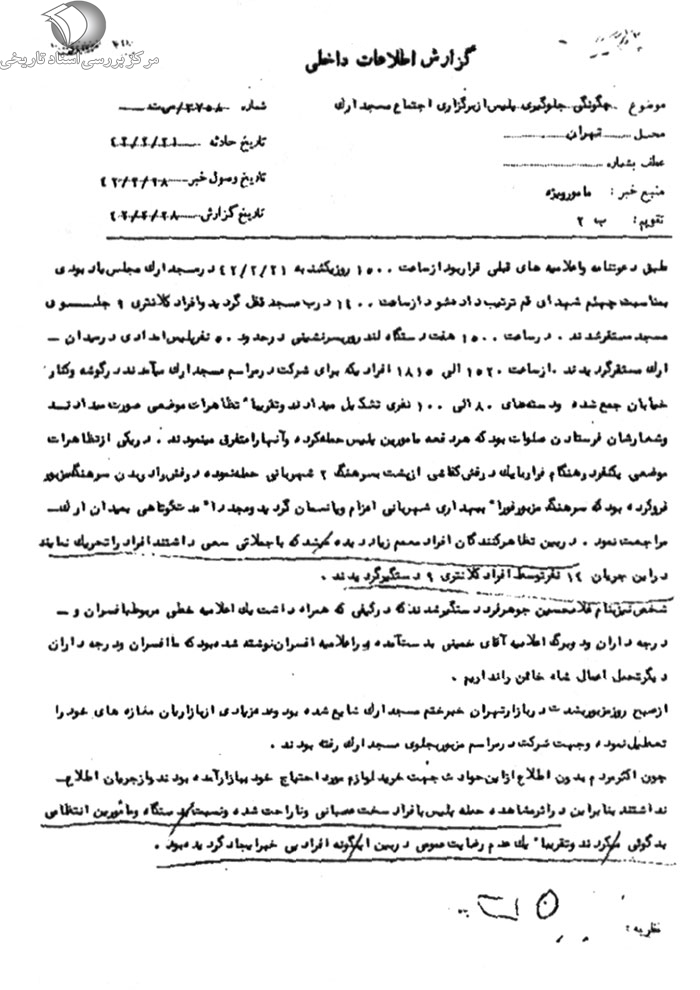 مرکز بررسی اسناد تاریخی
گزارش اطلاعات داخلی
موضوع چگونگی جلوگیری پلیس ازبرگزاری اجتماع مسجد ارك
شماره
محل تهران
تاریخ حادثه ۴۲/۲/۲۱
عطف بشماره
منبع خبر : مامورویژه
تاریخ وصول خبر ۴۲/۲/۲۸
تقویم : ب ۲
تاریخ گزارش ۴۲/۲/۲۸
طبق دعوتنامه واعلامیه های قبلی قراربود ازساعت ۱۵۰۰ روزیکشنبه ۴۲/۲/۲۱ درمسجد ارك مجلس یاد بودی
بمناسبت چهلم شهدای قم ترتیب داده شود ازساعت ۱۴۰۰ درب مسجد قفل گردید وافراد کلانتری ۹ جلسوی
مسجد مستقرشدند . درساعت ۱۵۰۰ هفت دستگاه لندرور سرنشینی درحدود ۵۰ نفرپلیس امدادی درمیدان –
ارك مستقرگردیدند . ازساعت ۱۵۲۰ الی ۱۸۱۵ افرادیکه برای شرکت درمراسم مسجد ارك میآمدند درگوشه وکنار
خیابان جمع شده ودسته‌های ۸۰ الی ۱۰۰ نفری تشکیل میدادند وتقریبا" تظاهرات موضعی صورت میدادند
وشعارشان فرستادن صلوات بود که هردفعه مامورین پلیس حمله کرده وآنهارامتفرق مینمودند . دریکی ازتظاهرات
موضعی یکنفردرهنگام فرار بایك درفش کفاشی ازپشت بسرهنگ ۲ شهربانی حمله نموده درفش رادربدن سرهنگ مزبور
فروکرده بود که سرهنگ مزبورفورا" ببهداری شهربانی اعزام وپانسمان گردید ومجددا" مدت کوتاهی بمیدان ارك
مراجعت نمود . دربین تظاهرکنندگان افراد معمم زیاد دیده میشد که باجملاتی سعی داشتند افراد راتحریك نمایند
دراین جریان ۱۴ نفرتوسط افراد کلانتری ۹ دستگیرگردیدند .
شخصی نیزبنام غلامحسین جوهرفرد دستگیرشد که درکیفی که همراه داشت یك اعلامیه خطی مربوط بافسران و –
درجه داران ودوبرگ اعلامیه آقای خمینی بدست آمده ودراعلامیه افسران نوشته شده بود که ماافسران ودرجه داران
دیگرتحمل اعمال شاه خائن رانداریم .
ازصبح روزمزبوربشدت دربازارتهران خبرختم مسجد ارك شایع شده بود وعده زیادی ازبازاریان مغازه های خود را
تعطیل نموده وجهت شرکت درمراسم مزبوربجلوی مسجد ارك رفته بودند .
چون اکثرمردم بدون اطلاع ازاین حوادث جهت خرید لوازم مورد احتیاج خود ببازارآمده بودند وازجریان اطلاع
نداشتند بنابراین دراثرمشاهده حمله پلیس بافراد سخت عصبانی وناراحت شده ونسبت بدستگاه ومأمورین انتظامی
بدگوئی میکردند وتقریبا" یك عدم رضایت عمومی دربین اینگونه افراد بی خبرایجاد گردیده بود .
نظریه :